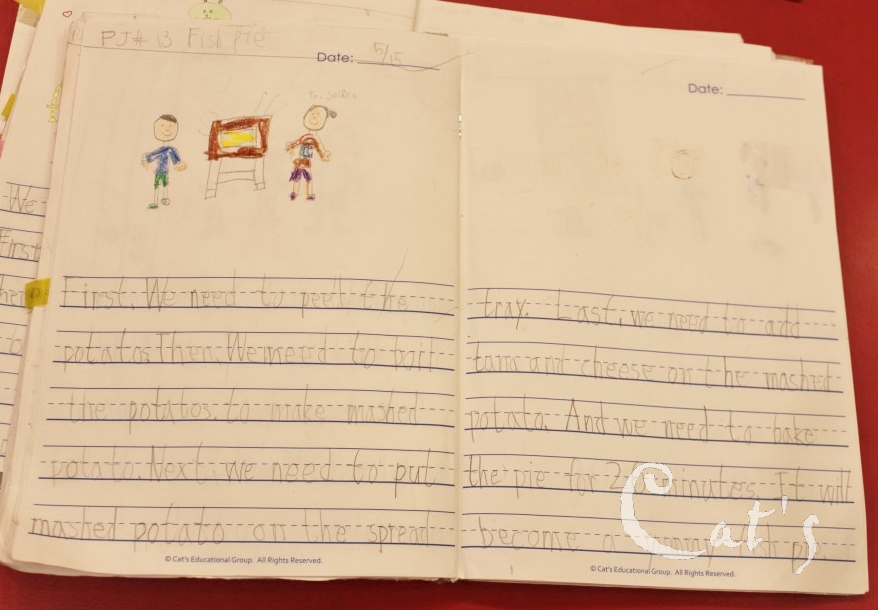 PJ# 13 Fish pie
Date: 5/15
First, We need to peel the
potatos. Then, We need to boil
the potatos. to make mashed
potato. Next, we need to put
mashed potato on the spread
© Cat's Educational Group. All Rights Reserved.
Date:
tray. Last, we need to add
tuna and cheese on the mashed
potato. And we need to bake
the pie for 20 minutes. It will
become a
© Cat's Educational Group. All Rights Reserved.
We
First
Cat's